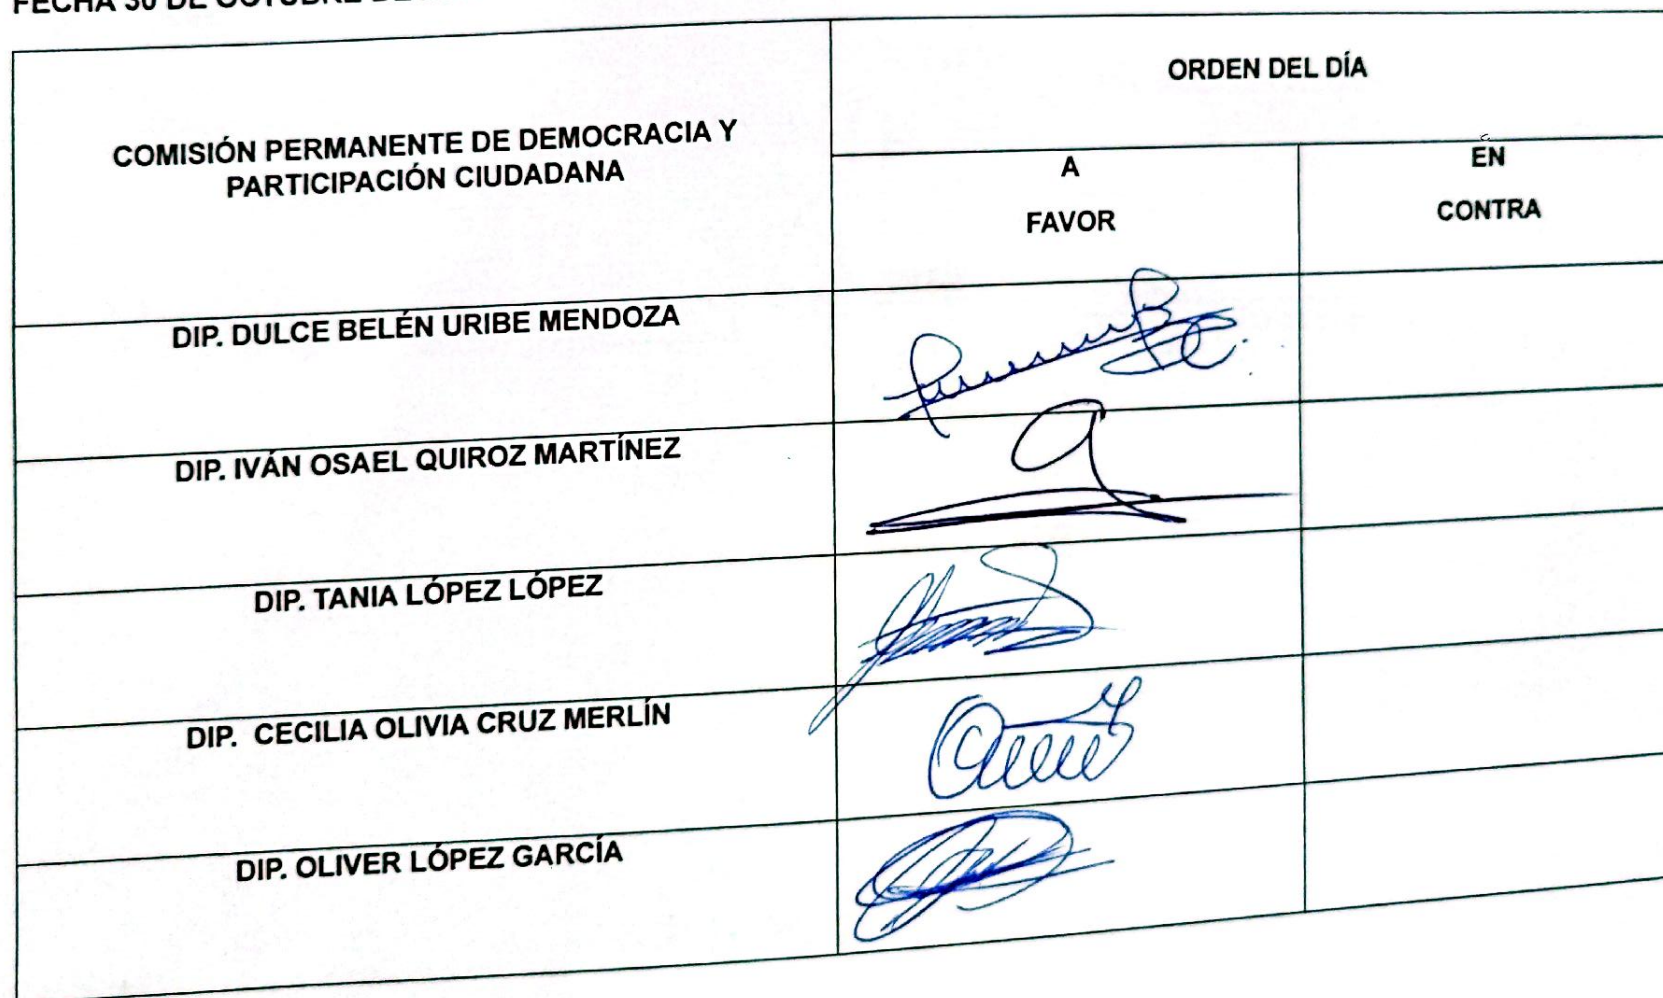 FECHA 30 DE OCTUBRE DE
COMISIÓN PERMANENTE DE DEMOCRACIA Y
PARTICIPACIÓN CIUDADANA
ORDEN DEL DÍA
A
FAVOR
EN
CONTRA
DIP. DULCE BELÉN URIBE MENDOZA
DIP. IVÁN OSAEL QUIROZ MARTÍNEZ
DIP. TANIA LÓPEZ LÓPEZ
DIP. CECILIA OLIVIA CRUZ MERLÍN
DIP. OLIVER LÓPEZ GARCÍA